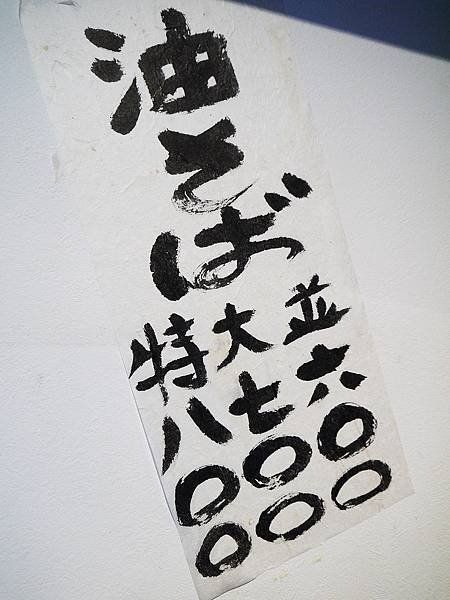 油そば
並六〇〇
大七〇〇
特八〇〇